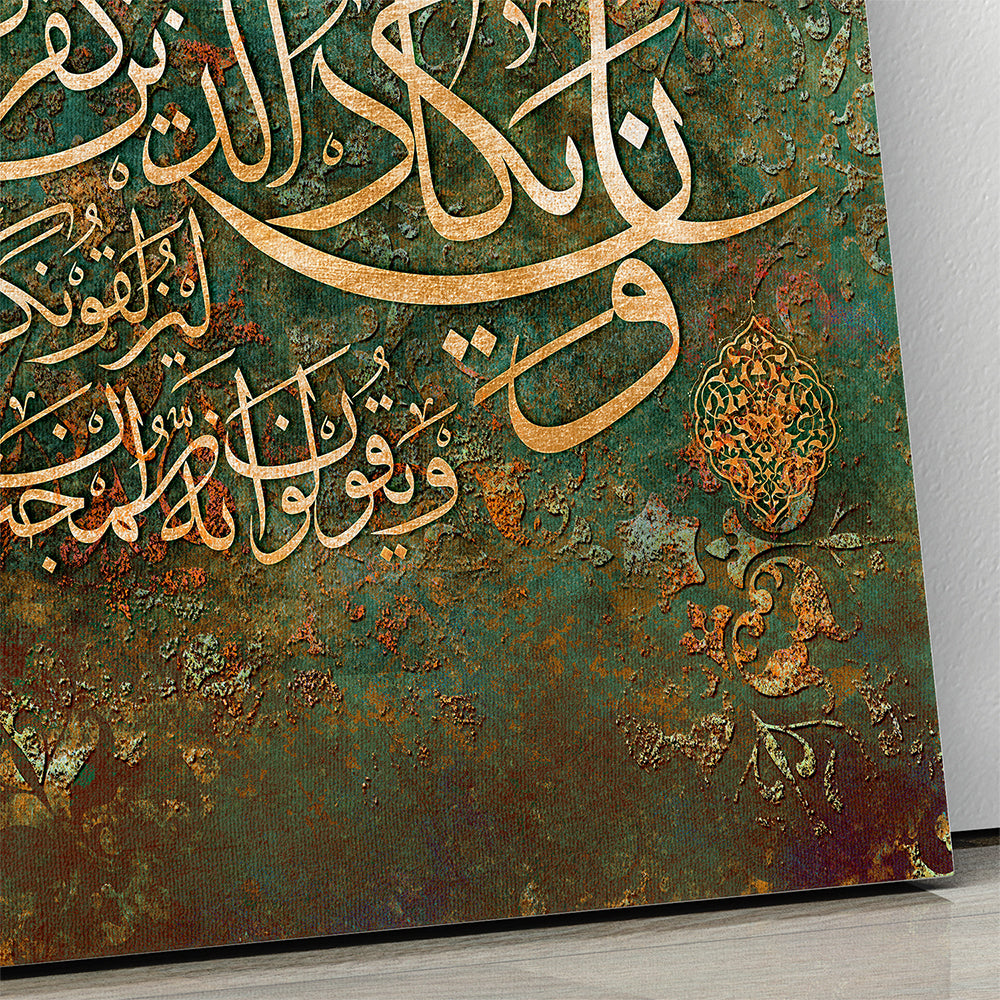 وان يكاد الذين كفر
ليزلقونك
ويقولون انه لمجن